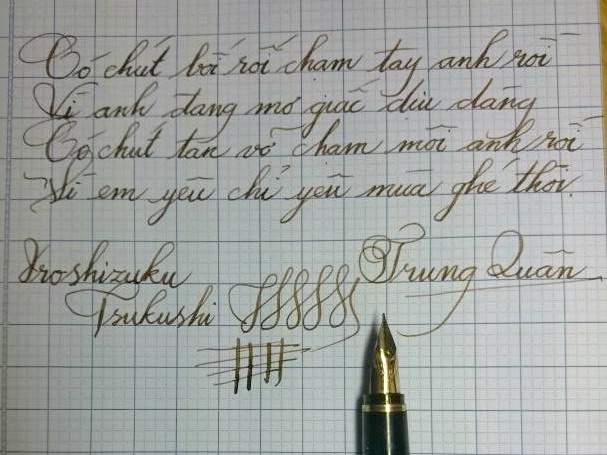 Có chút bối rối chạm tay anh rồi
Vì anh đang mơ giấc dịu dàng
Có chút tan vỡ chạm môi anh rồi
Vì em yêu chỉ yêu mùa ghé thôi.
Iroshizuku
Trung Quân
Tsukushi